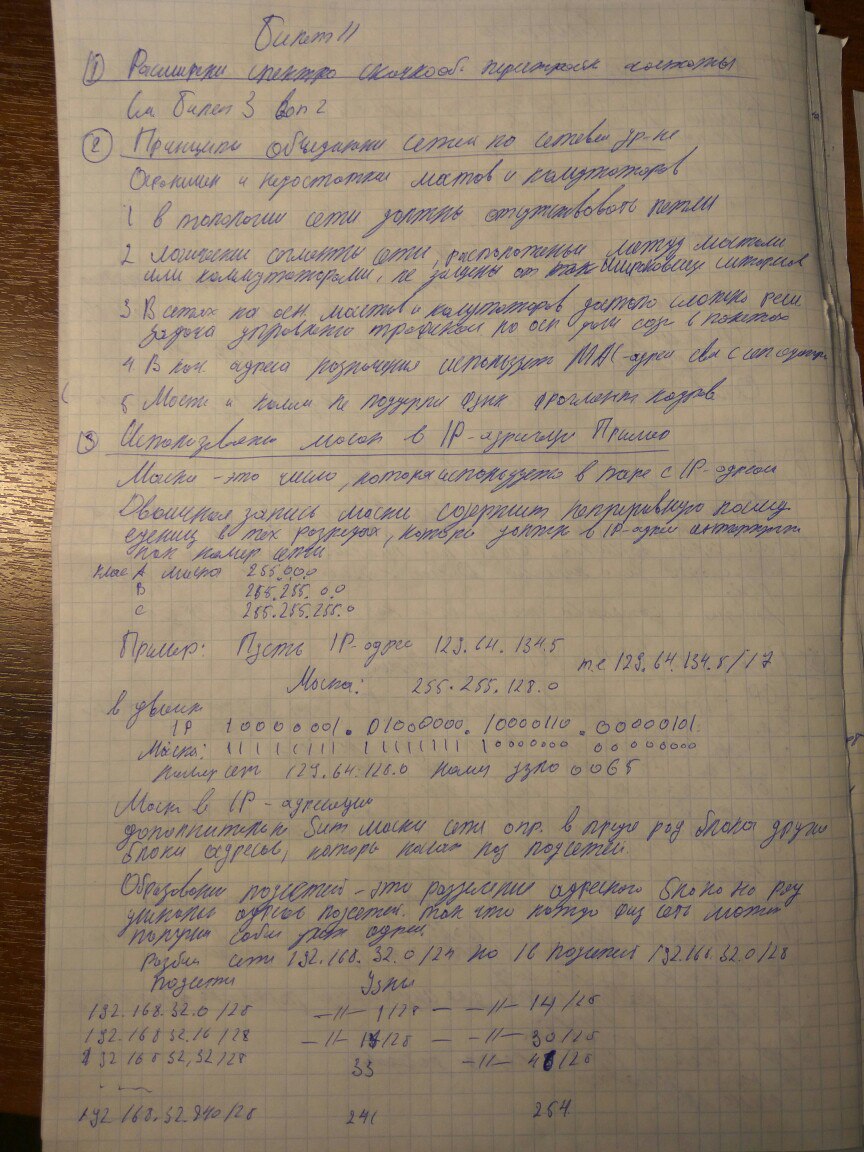 Билет 11
1 Расширение спектра скачкооб. перестройк частоты
См Билет 3 Воп 2
2 Принципы объединения сетей на сетевом ур-не
Ограничен и недостатки мостов и коммутаторов
1 в топологии сети должны отсутствовать петли
2 логические сегменты сети, расположенные между мостами
или коммутаторами, не защищены от широковещ штормов
3 В сетях на осн. мостов и коммутаторов достато сложно реш
задача управления трафиком на осн дан сод в пакетах
4 В кач адреса назначения используется MAC-адрес
5 Мосты и комм не поддерж функ фрагмент кадров
3 Использование масок в IP-адресации Пример
Маска - это число, которая используется в паре с IP-адресом
Двоичная запись маски содержит непрерывную послед
единиц в тех разрядах, которые должны в IP-адресе интерпретир
как номер сети
Класс A маска 255.0.0.0
B 255.255.0.0
C 255.255.255.0
Пример: Пусть IP-адрес 129.64.134.5
т.е 129.64.134.5/17
Маска: 255.255.128.0
в двоичн
IP 10000001.01000000.10000110.00000101
Маска: 11111111 11111111 10000000 00000000
номер сет 129.64.128.0 номер узла 0.0.6.5
Маски в IP-адресации
дополнительные биты маски сети опр. в пред
блоки адресов, которы назыв подсетей.
Образование подсетей - это разделение адресного блока на ряд
уникальных адресов подсетей. так что каждо физ сеть может
получить собств адрес
Разбив сети 192.168.32.0/24 на 16 подсетей 192.168.32.0/28
Подсети Узлы
192.168.32.0/28 -11- 1/28 - -11- 14/28
192.168.32.16/28 -11- 17/28 - -11- 30/28
192.168.32.32/28 33 -11- 46/28
192.168.32.240/28 241 254